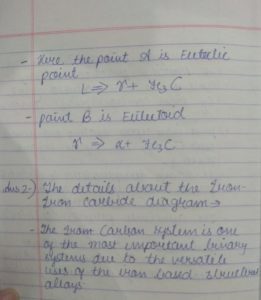 - Here the point A is Eutectic
point
L ⇒ γ + Fe3C
- point B is Eutectoid
γ ⇒ α + Fe3C
Ans 2-) The details about the Iron-
Iron carbide diagram →
- The Iron Carbon system is one
of the most important binary
systems due to the versatile
uses of the iron based structural
alloys